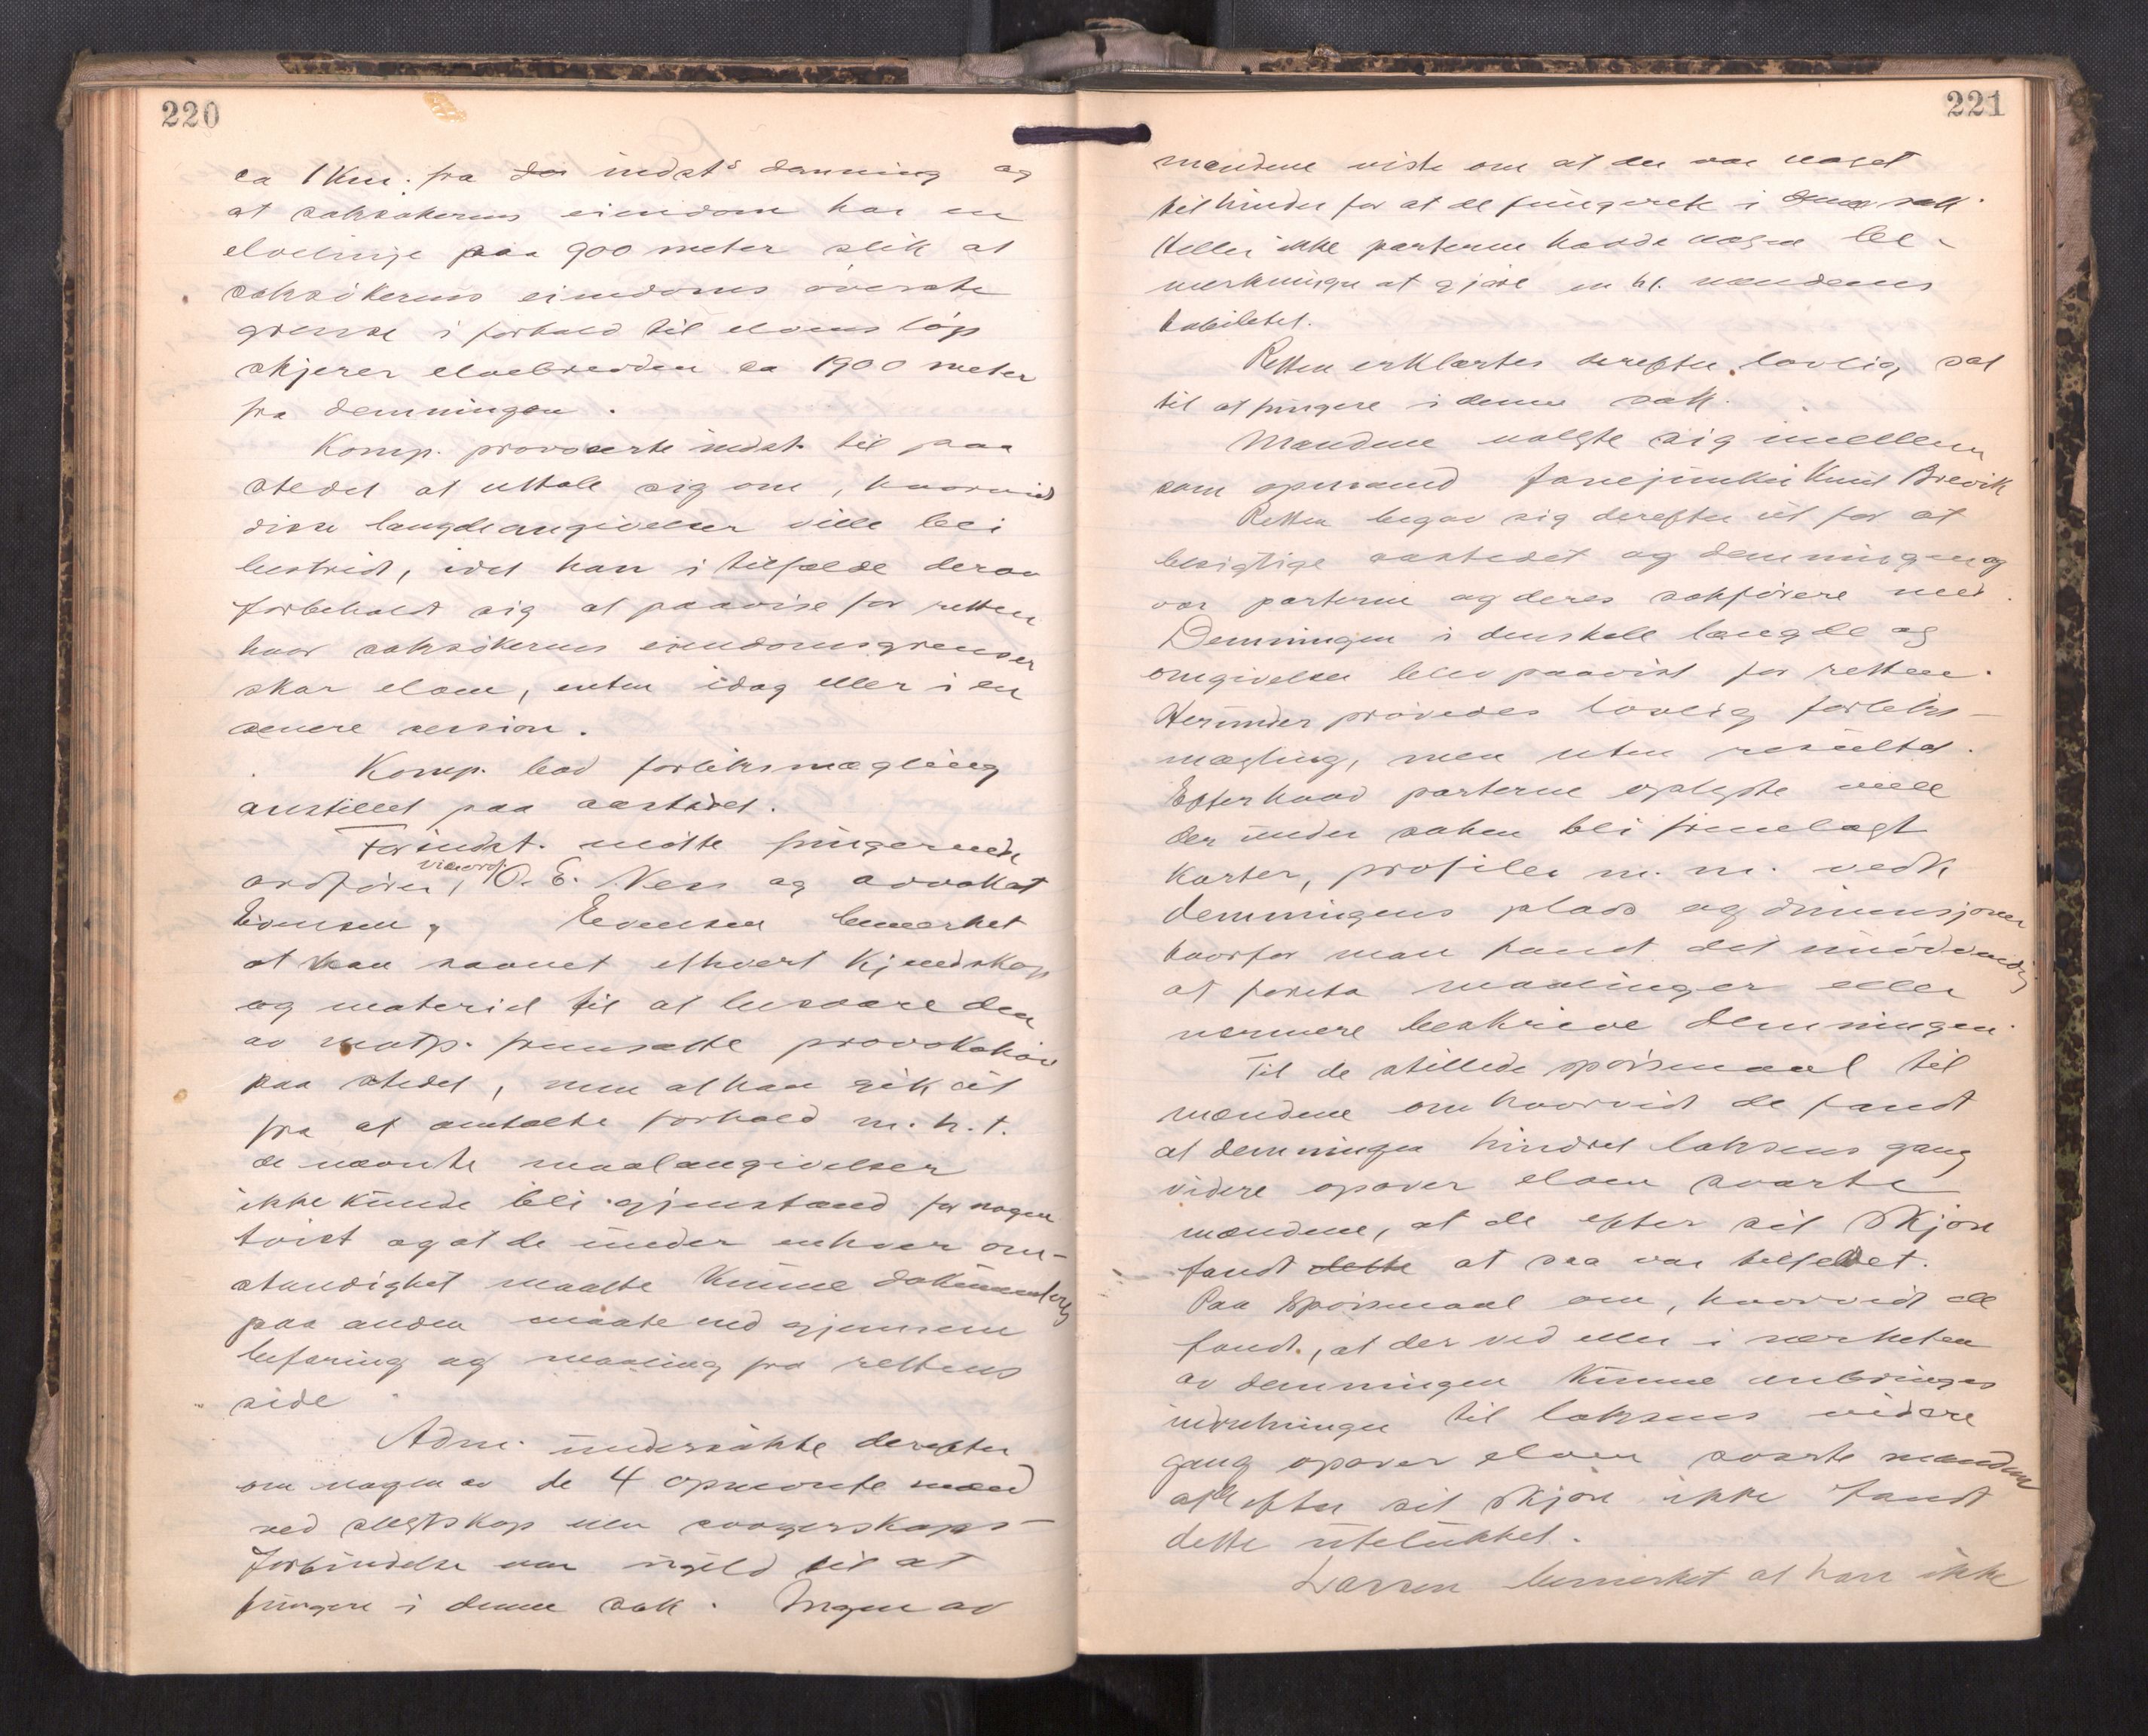 220
ca 1 km. fra indst.s demning og
at saksøkerens eiendom har en
elvelinje paa 900 meter slik at
saksøkerens eiendoms øverste
grense i forhold til elvens løp
skjærer elvebredden ca 1900 meter
fra demningen.
Komp. provoserte indst. til paa
stedet at uttale sig om, hvorvidt
disse længdeangivelser ville bli
bestridt, idet han i tilfælde derav
forbeholdt sig at paavise for retten
hvor saksøkerens eiendomsgrenser
skar elven, enten idag eller i en
senere session.
Komp. bad forliksmægling
anstillet paa aastedet.
For indst. møtte fungerende
ordfører, viceordf. O. E. Ness og advokat
Evensen. Evensen bemerket
at han savnet ethvert kjendskap
og materiel til at besvare den
av motp. fremsatte provokation
paa stedet, men at han gik ut
fra at omtalte forhold m.h.t.
de nævnte maalangivelser
ikke kunde bli gjenstand for nogen
tvist og at de under enhver om-
stændighet maatte kunne dokumenteres
paa anden maate end gjennem
befaring og maaling fra rettens
side.
Adm. undersøkte derefter
om nogen av de 4 opnevnte mænd
ved slegtskap eller svogerskaps-
forbindelse var ugild til at
fungere i denne sak. Ingen av
221
mændene viste om at der var noget
til hinder for at de fungerete i denne sak.
Heller ikke parterne havde nogen be-
merkninger at gjøre m.h.t. mændenes
habilitet.
Retten erklærtes derefter lovlig sat
til at fungere i denne sak.
Mændene valgte sig imellem
som opmand Knut Brevik
Retten begav sig derefter ut for at
besigtige aastedet og demningen og
var parterne og deres sakførere med.
Demningen i dens hele længde og
omgivelser blev paavist for retten.
Herunder prøvedes lovlig forliks-
mægling, men uten resultat.
Efter hvad parterne oplyste ville
der under saken bli fremlagt
karter, profiler m.m. vedk.
demningens plass og dimensjoner
hvorfor man fandt det unødvendig
at foreta maalinger eller
nærmere beskrive demningen.
Til de stillede spørsmaal til
mændene om hvorvidt de fandt
at demningen hindret laksens gang
videre opover elven svarte
mændene, at de efter sit skjøn
fandt dette at saa var tilfeldet.
Paa spørsmaal om, hvorvidt de
fandt, at der ved eller i nærheten
av demningen kunne anbringes
indretninger til laksens videre
gang opover elven svarte mændene
at de efter sit skjøn ikke fandt
dette utelukket.
Larsen bemerket at han ikke